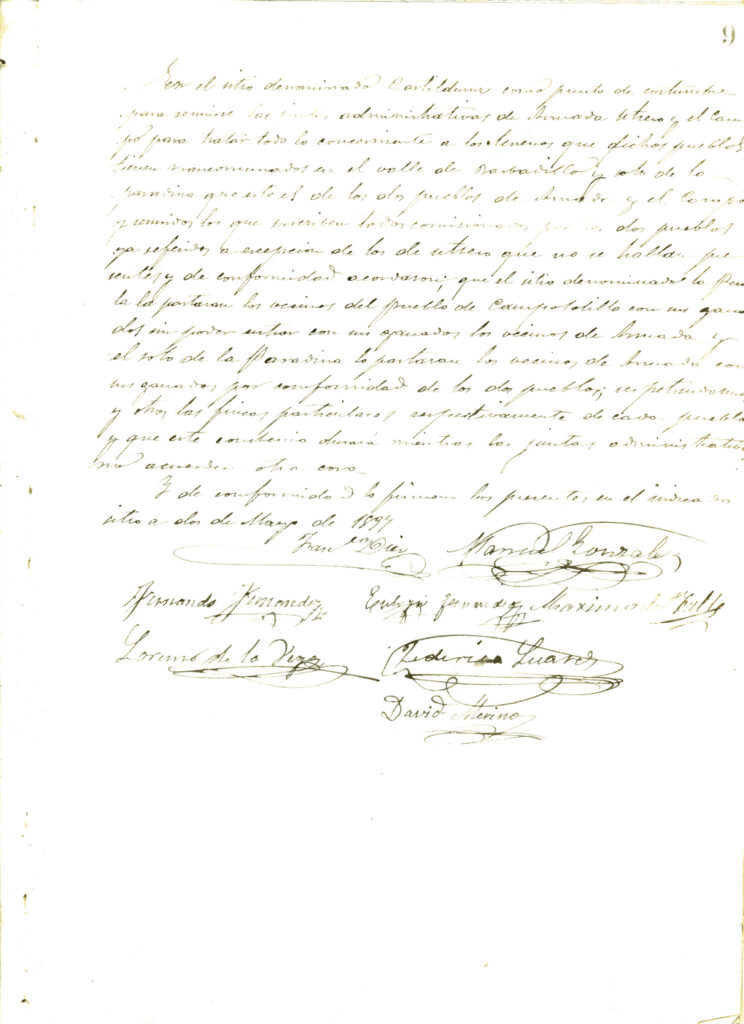 9
En el sitio denominado Castilderus como punto de costumbre
para reunirse las juntas administrativas de Armada Utrero y el Cam
po para tratar todo lo concerniente a los terenos que dichos pueblos
tienen mancomunados en el valle de Barbadillo y soto de la
Paradina que este es de los dos pueblos de Armada y el Campo
y reunidos los que suscriben todos comisionados por los dos pueblos
ya referidos a excepcion de los de utrero que no se hallan pre
sentes y de conformidad acordaron; que el sitio denominado la
la la pastaran los vecinos del Pueblo de Campolotillo con sus gana
dos sin poder entrar con sus ganados los vecinos de Armada y
el soto de la Paradina lo pastaran los vecinos de Armada con
sus ganados por conformidad de los dos pueblos; respetando unos
y otros las fincas particulares respectivamente de cada pueblo
y que este combenio durará mientras las juntas administrativas
no acuerden otra cosa
Y de conformidad lo firman los presentes en el indicado
sitio a dos de Mayo de 1897
Fran.co Diez Manuel Gonzalez
Fernando Fernandez Eulogio Fernandez Maximo del Valle
Lorenzo de la Vega Federico Suarez
David Merino